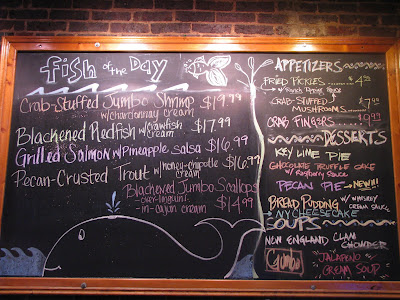 fish of the Day
Crab-Stuffed Jumbo Shrimp $19.99
w/chardonnay cream
Blackened Redfish w/crawfish cream $17.99
Grilled Salmon w/Pineapple salsa $16.99
Pecan-Crusted Trout w/honey-chipotle cream $16.99
Blackened Jumbo Scallops
over linguini
in cajun cream $14.99
APPETIZERS
FRIED PICKLES
w/Ranch Dipping Sauce
CRAB-STUFFED
MUSHROOMS $7.99
CRAB FINGERS
DESSERTS
KEY LIME PIE
CHOCOLATE TRUFFLE CAKE
w/ Raspberry Sauce
PECAN PIE NEW!!
BREAD PUDDING w/ WHISKEY CREAM SAUCE
NY CHEESECAKE
SOUPS
NEW ENGLAND CLAM CHOWDER
Gumbo
JALAPENO CREAM SOUP